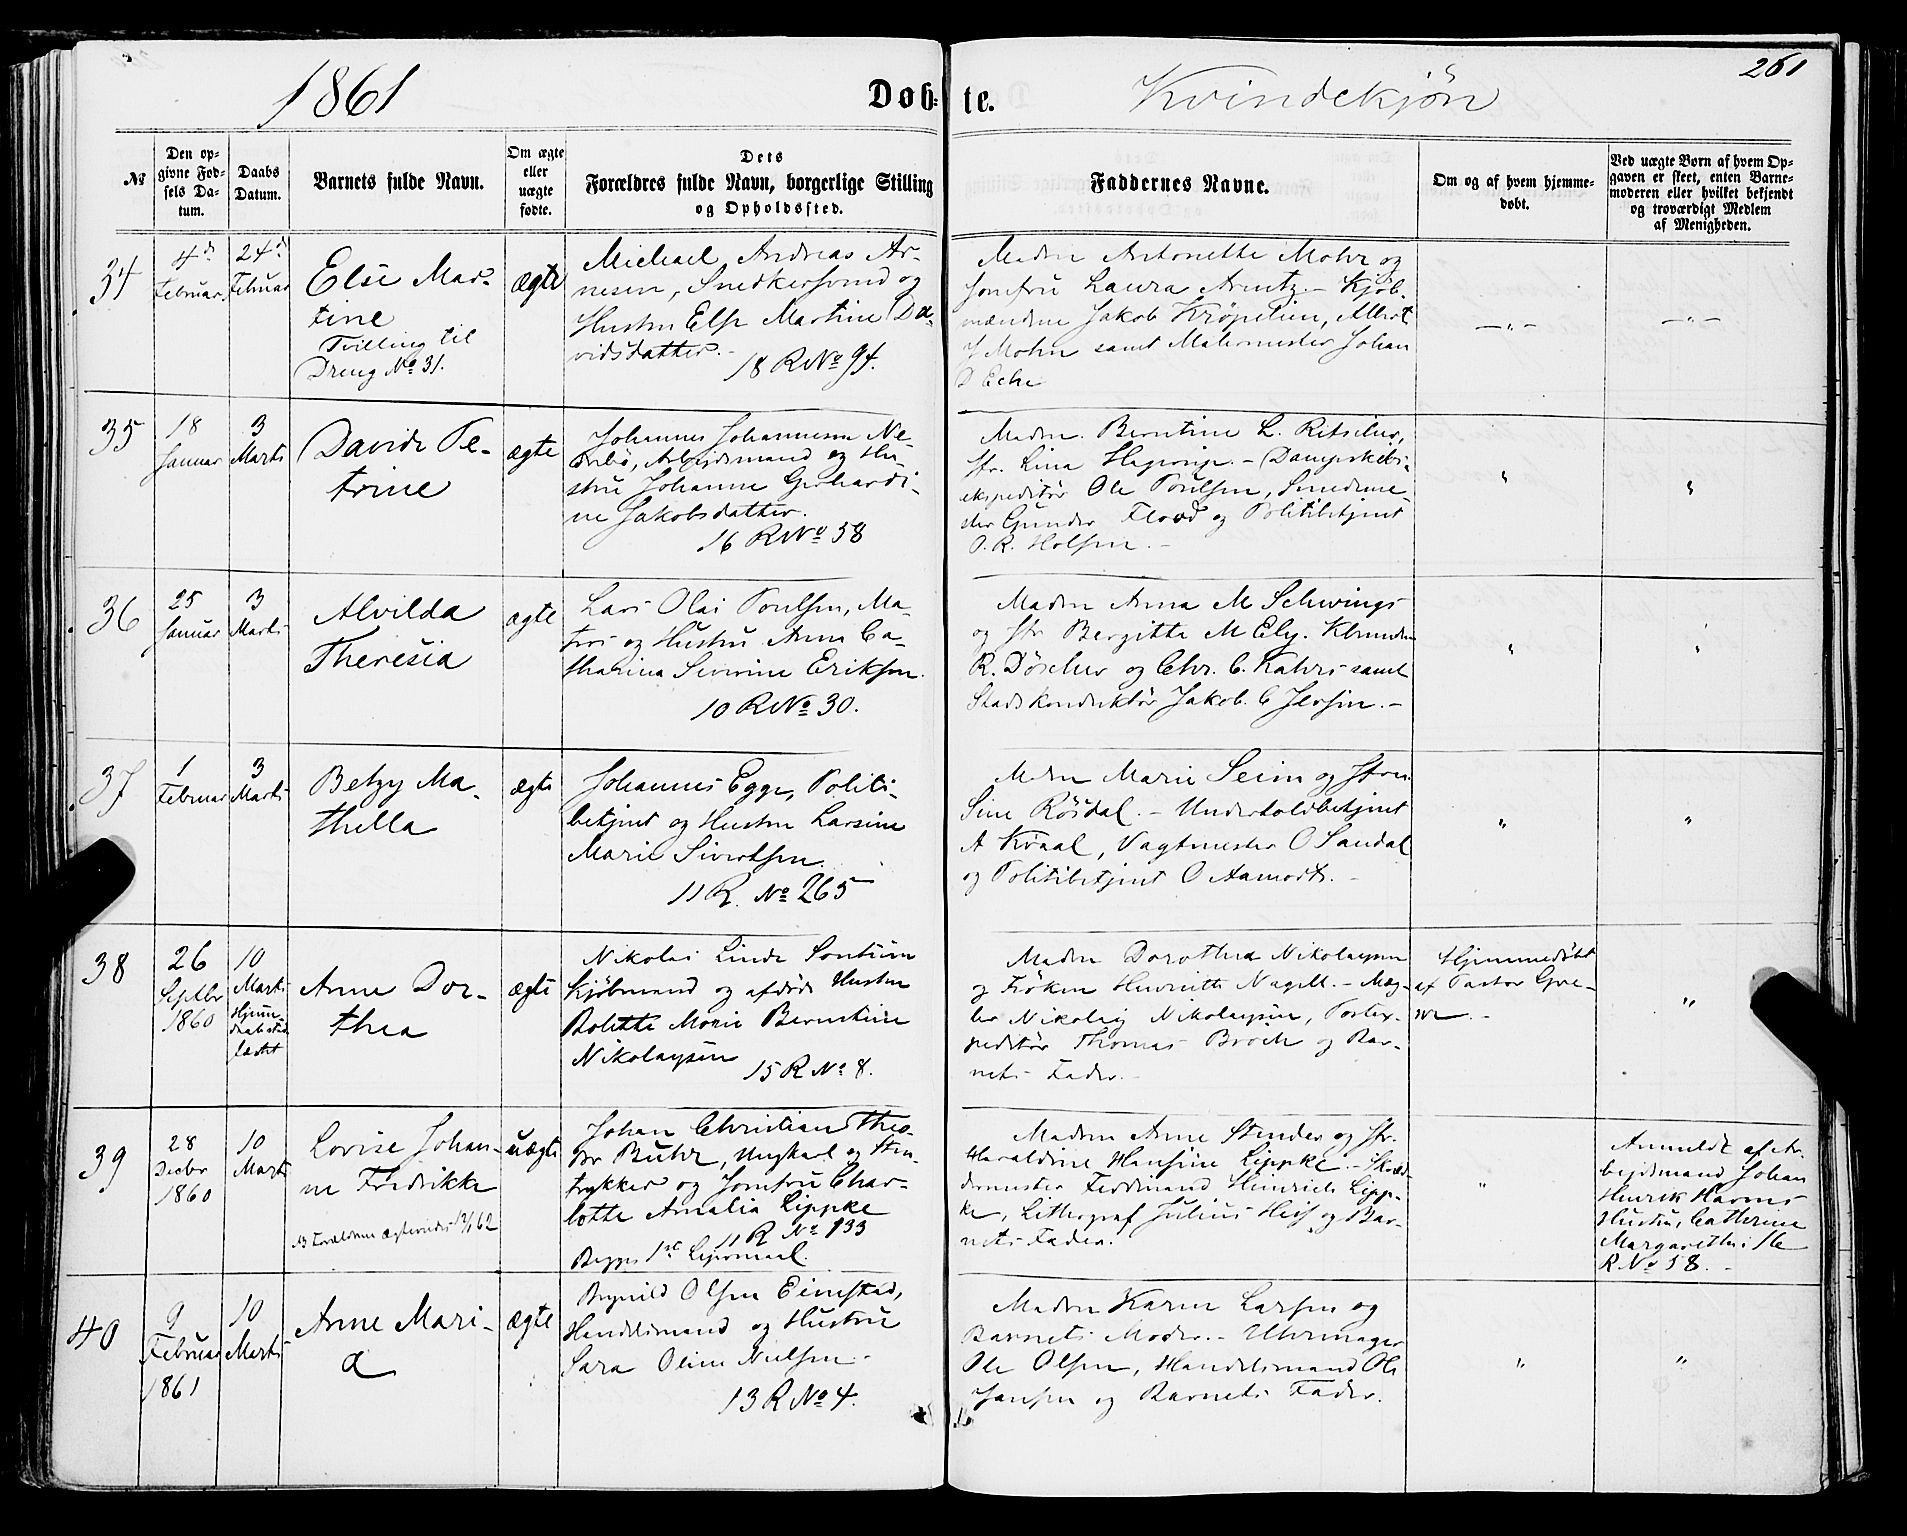 1861
Døb-
te.
Kvindekjøn
261
№
Den op-
givne Fød-
sels Da-
tum.
Daabs
Datum.
Barnets fulde Navn.
Om ægte
eller
uægte
fødte.
Dets
Forældres fulde Navn, borgerlige Stilling
og Opholdssted.
Faddernes Navne.
Om og af hvem hjemme-
døbt.
Ved uægte Børn af hvem Op-
gaven er skeet, enten Barne-
moderen eller hvilket bekjendt
og troværdigt Medlem
af Menigheden.
34
4de
Februar
24de
Februar
Else Mar-
tine
Tvilling til
Dreng No 31.
ægte
Michael Andreas Ar-
nesen, Snedkersvend og
Hustru Else Martine Da-
vidsdatter.
18 R No 94.
Madm Antonette Mohr og
Jomfru Laura Arntz. - Kjøb-
mændene Jakob Krøpelien, Albert
J Mohn samt Malermester Johan
D
35
18
Januar
3
Marts
Davide Pe-
trine
ægte
Johannes Johannesen Ne-
, Arbeidsmand og Hu-
stru Johanne Gerhardi-
ne Jakobsdatter.
16 R No 58
Madm. Berntine L.
Jfr. Lina Hagerup. - Dampskibs-
expeditør Ole Poulsen, Smedme-
ster Gunder Flood og Politibetjent
O. R. Holsen. -
36
25
Januar
3
Marts
Alvilda
Theresia
ægte
Lars Olai Poulsen, Ma-
tros og Hustru Anna Ca-
tharina Severine Eriksen.
10 R No 30.
Madm Anna M Schwings
og Jfr Bergitte M Ely.
R. Døscher og Chr. C. Kahrs samt
Stadskonduktør Jakob C Jersin. -
37
1
Februar
3
Marts
Betzy Ma-
thella
ægte
Johannes Egge, Politi-
betjent og Hustru Larsine
Marie Sivertsen.
11 R. No 265
Madm Marie Seim og Jfru
Sine Røsdal. - Undertoldbetjent
A Kvaal, Vagtmester O Sandal
og Politibetjent O Aamodt. -
38
26
Septbr
1860
10
Marts
Hjem-
ægte
Anne Dor-
thea
Nikolai Linde Sontum
Kjøbmand og afdøde Hustru
Bolette Marie Berntine
Nikolaysen
15 R No 8.
Madm Dorothea Nikolaysen
og Frøken Henriette Nagell. - Mæg-
ler Nikolai Nikolaysen, Postex-
peditør Thomas Broch og Bar-
nets Fader. -
Hjemmedøbt
af Pastor Gre-
ve. -
39
28
Decbr
1860
10
Marts
Lovise Johan-
ne Fredrikke
uægte
Johan Christian Theo-
dor Buhr, Ungkarl og Sten-
trykker og Jomfru Char-
lotte Amalia Lippke
11 R No 133
Begges 1ste Leiermaal.
Madm Anne Stender og Jfr.
Haraldine Hansine Lippke. - Skræd-
dermester Ferdinand Heinrich Lipp-
ke, Lithograf Julius og Bar-
nets Fader.
Anmeldt af Ar-
beidsmand Johan
Henrik Harms
Hustru, Cathrine
Margarethe; 16
R No 58. -
40
9
Februar
1861
10
Marts
Anne Mari-
a
ægte
Brynild Olsen Eimstad,
Handelsmand og Hustru
Sara Oline Nielsen -
13 R No 4.
Madm Karen Larsen og
Barnets Moder. - Uhrmager
Ole Olsen, Handelsmand Ole
Jansen og Barnets Fader.